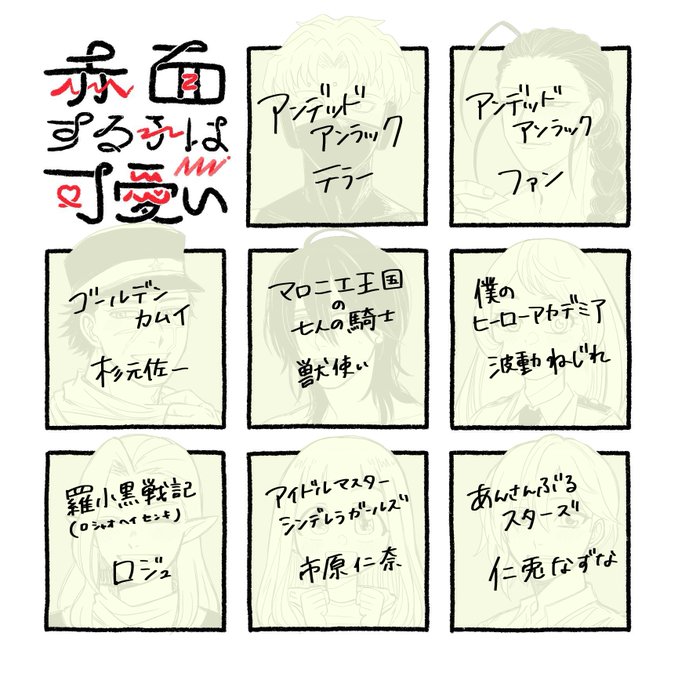 赤面
する子は
可愛い
アンデッド
アンラック
テラー
アンデッド
アンラック
ファン
ゴールデン
カムイ
杉元佐一
マロニエ王国
の
七人の騎士
獣使い
僕の
ヒーローアカデミア
波動ねじれ
羅小黒戦記
(ロシャオヘイセンキ)
ロジュ
アイドルマスター
シンデレラガールズ
市原仁奈
あんさんぶる
スターズ
仁兎なずな